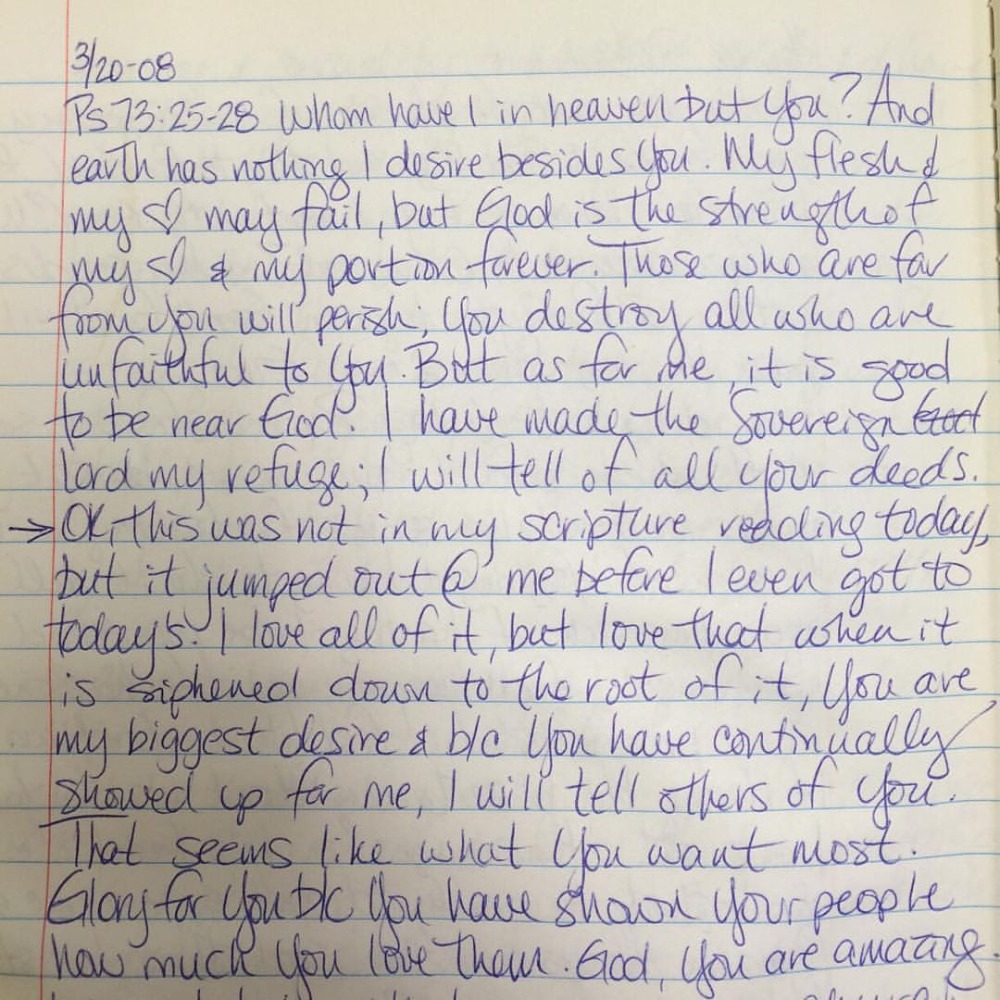 3/20-08
Ps 73:25-28 Whom have I in heaven but You? And
earth has nothing I desire besides You. My flesh &
my ♡ may fail, but God is the strength of
my ♡ & my portion forever. Those who are far
from you will perish; You destroy all who are
unfaithful to You. But as for me, it is good
to be near God. I have made the Sovereign God
Lord my refuge; I will tell of all your deeds.
→ OK, this was not in my scripture reading today,
but it jumped out @ me before I even got to
todays! I love all of it, but love that when it
is siphened down to the root of it, You are
my biggest desire & b/c You have continually
showed up for me, I will tell others of You.
That seems like what You want most.
Glory for You b/c You have shown your people
how much You love them. God, You are amazing.